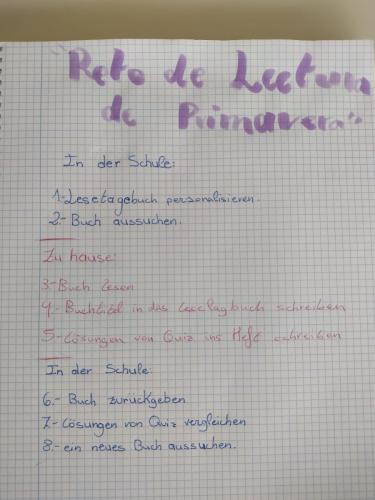 "Reto de Lectura
de Primavera"
In der Schule:
1.-Lesetagebuch personalisieren.
2.- Buch aussuchen.
Zu hause:
3-Buch lesen
4.- Buchtitel in das Lesetagbuch schreiben
5- Lösungen von Quiz ins Heft schreiben
In der Schule:
6.- Buch zurückgeben
7.- Lösungen von Quiz vergleichen
8.- ein neues Buch aussuchen.